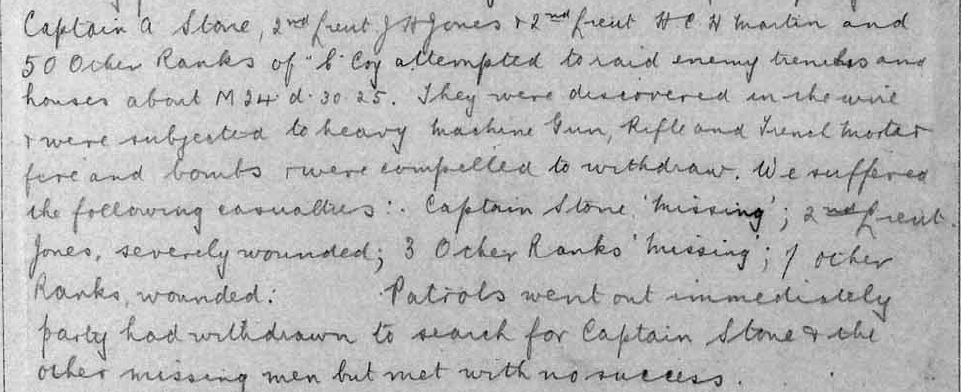 Captain A Stone, 2nd Lieut J H Jones & 2nd Lieut H C H Martin and
50 Other Ranks of "C" Coy attempted to raid enemy trenches and
houses about M 24 d. 30 25. They were discovered in the wire
& were subjected to heavy Machine Gun, Rifle and Trench Mortar
fire and bombs & were compelled to withdraw. We suffered
the following casualties:. Captain Stone 'Missing'; 2nd Lieut.
Jones, severely wounded; 3 Other Ranks 'Missing'; 7 other
Ranks, wounded. Patrols went out immediately
party had withdrawn to search for Captain Stone & the
other missing men but met with no success.